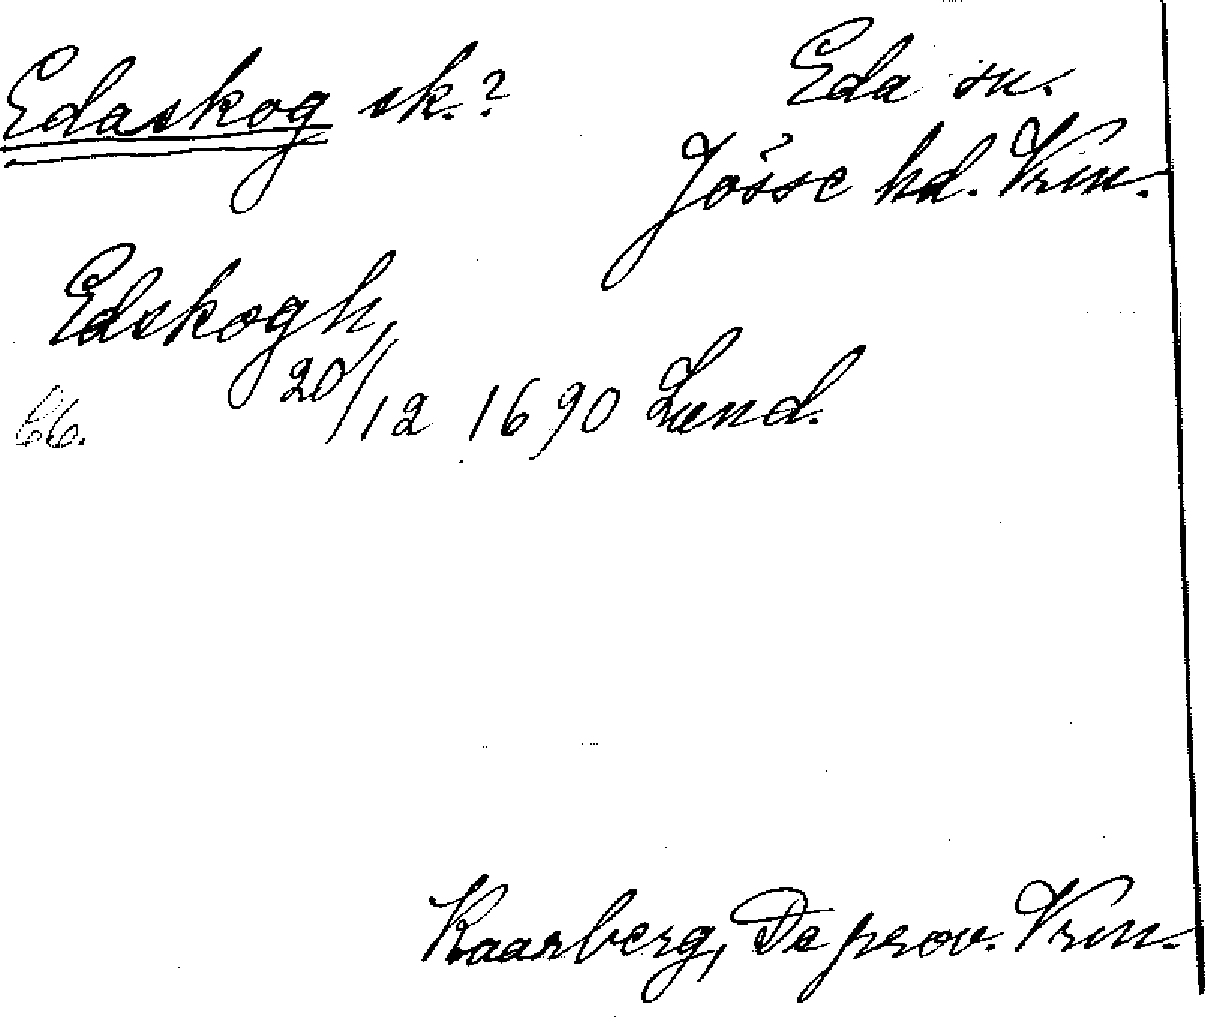 Edaskog sk.?
Eda sn.
Jösse hd. Vrm.
Edskogh,
20/12 1690 Lund.
66.
Kaarberg, De prov. Vrm.